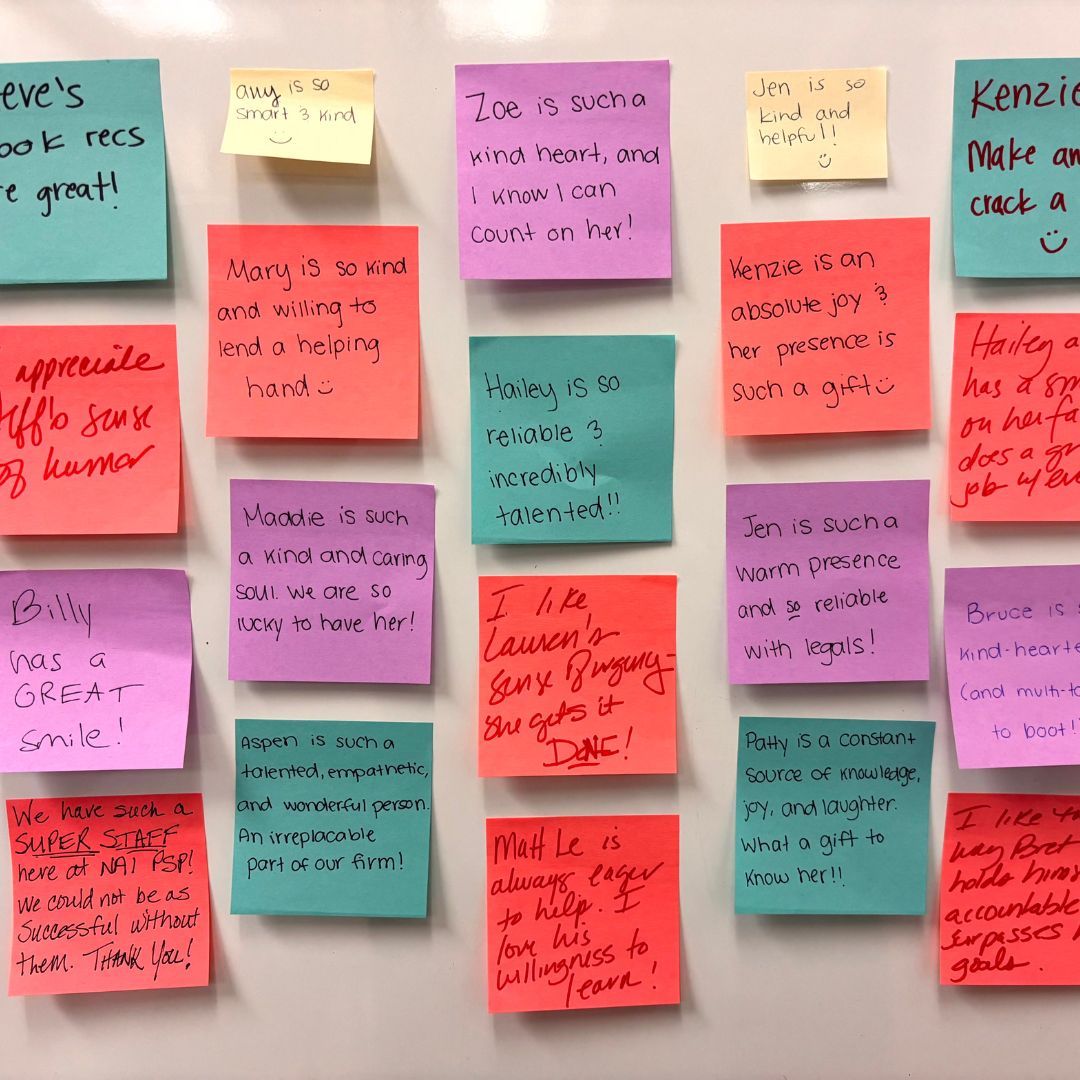 eve's
ook recs
re great!
appreciate
eff's sense
of humor
Billy
has a
GREAT
smile!
We have such a
SUPER STAFF
here at NAI PSP!
we could not be as
successful without
them. THANK YOU!
amy is so
smart & kind
Mary is so kind
and willing to
lend a helping
hand
Maddie is such
a kind and caring
soul. we are so
lucky to have her!
Aspen is such a
talented, empathetic,
and wonderful person.
An irreplacable
part of our firm!
Zoe is such a
kind heart, and
I know I can
count on her!
Hailey is so
reliable &
incredibly
talented!!
I like
Lauren's
sense of urgency-
she gets it
DONE!
Matt Le is
always eager
to help. I
love his
willingness to
learn!
Jen is so
kind and
helpful!!
Kenzie is an
absolute joy &
her presence is
such a gift
Jen is such a
warm presence
and so reliable
with legals!
Patty is a constant
source of knowledge,
joy, and laughter.
What a gift to
know her!!
Kenzie
Make an
crack a
Hailey a
has a sm
on her fa
does a gr
job w/ eve
Bruce is s
kind-hearte
(and multi-ta
to boot!
I like th
way Bret
holds hims
accountable
surpasses h
goals.